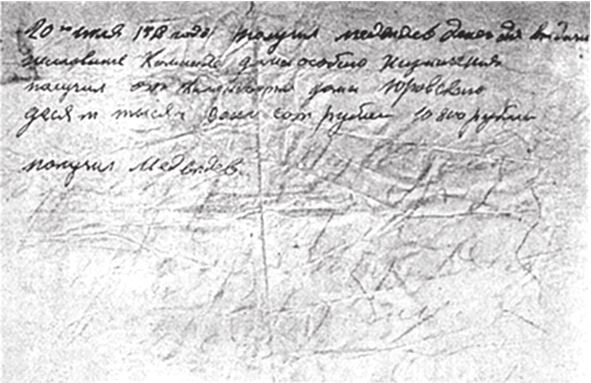 20 го июля 1918 года получил медведев денег для выдачи
жалованье Команде дома особого назначения
получил от Каменданта дома Юровского
десят тысяч восем сот рублей 10 800 рублей
получил Медведев